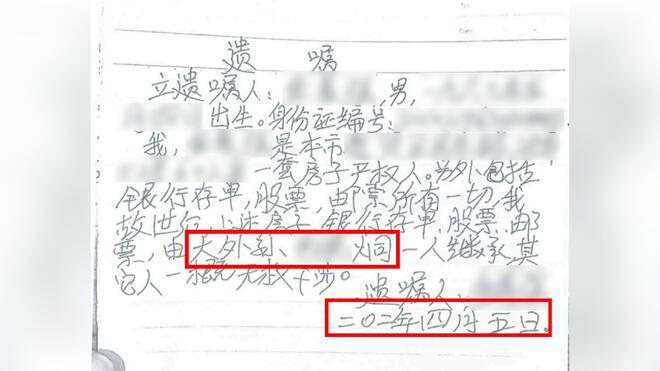 遗 嘱
立遗嘱人：，男，
出生。身份证编号：
我，是本市
一套房子产权人。另外包括
银行存单，股票，邮票所有一切，我
故世后上述房子、银行存单、股票、邮
票，由大外孙、炯一人继承，其
它人一概无权干涉。
遗嘱人：
二〇二年四月五日.